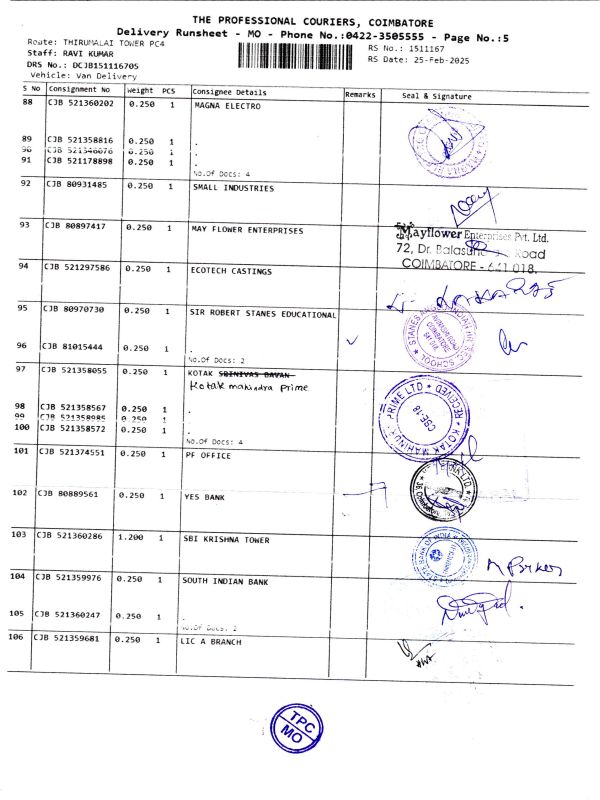 THE PROFESSIONAL COURIERS, COIMBATORE
Delivery Runsheet - MO - Phone No.:0422-3505555 - Page No.:5
Route: THIRUMALAI TOWER PC4
RS No.: 1511167
Staff: RAVI KUMAR
RS Date: 25-Feb-2025
DRS No.: DCJB151116705
Vehicle: Van Delivery
S No Consignment No Weight PCS Consignee Details Remarks Seal & Signature
88 CJB 521360202 0.250 1 MAGNA ELECTRO
89 CJB 521358816 0.250 1 .
90 0.250 1 .
91 CJB 521178898 0.250 1 .
No.Of Docs: 4
92 CJB 80931485 0.250 1 SMALL INDUSTRIES
93 CJB 80897417 0.250 1 MAY FLOWER ENTERPRISES
Mayflower Enterprises Pvt. Ltd.
72, Dr. Road
COIMBATORE - 641 018.
94 CJB 521297586 0.250 1 ECOTECH CASTINGS
95 CJB 80970730 0.250 1 SIR ROBERT STANES EDUCATIONAL
96 CJB 81015444 0.250 1 .
No.Of Docs: 2
97 CJB 521358055 0.250 1 KOTAK SRINIVAS BAVAN
Kotak mahindra prime
PRIME LTD RECEIVED KOTAK
CBE-18
98 CJB 521358567 0.250 1 .
99 CJB 521358985 0.250 1 .
100 CJB 521358572 0.250 1 .
No.Of Docs: 4
101 CJB 521374551 0.250 1 PF OFFICE
102 CJB 80889561 0.250 1 YES BANK
103 CJB 521360286 1.200 1 SBI KRISHNA TOWER
104 CJB 521359976 0.250 1 SOUTH INDIAN BANK
105 CJB 521360247 0.250 1 .
No.Of Docs: 2
106 CJB 521359681 0.250 1 LIC A BRANCH
TPC
MO